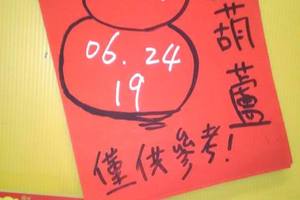 葫蘆
06. 24
19
僅供參考!